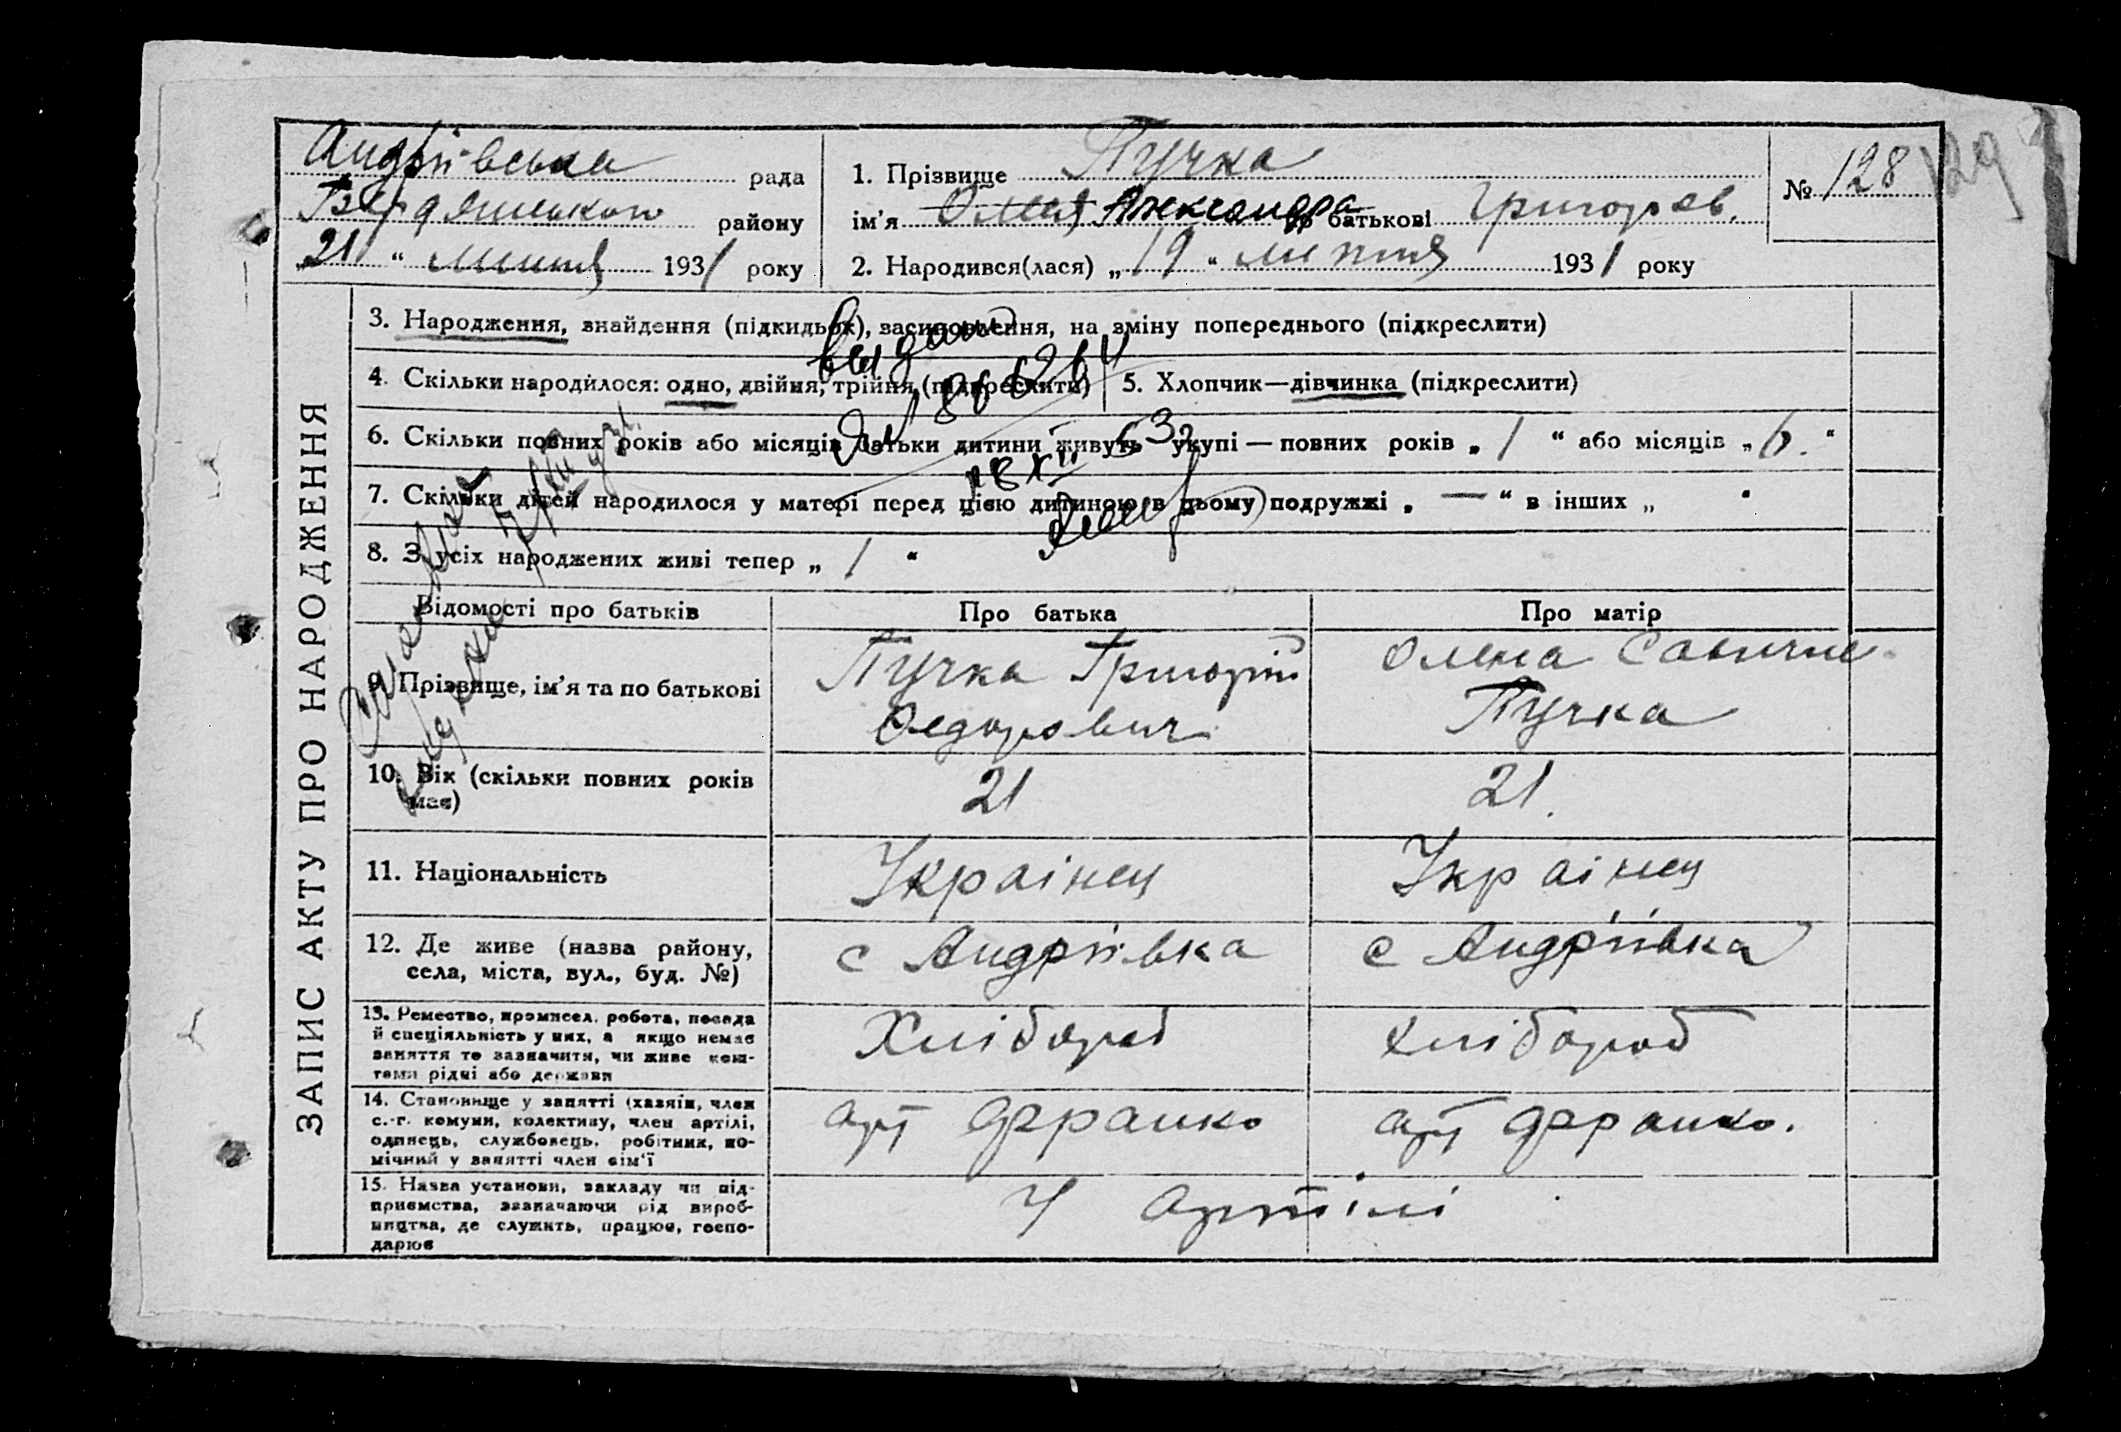 Андріївська рада
Бердянського району
21 " липня 1931 року
1. Прізвище Пучка
ім'я Олена Александра по батькові Григоров.
2. Народився(лася) „ 19 " липня 1931 року
№ 128
129
ЗАПИС АКТУ ПРО НАРОДЖЕННЯ
3. Народження, знайдення (підкидьок), засиновлення, на зміну попереднього (підкреслити)
4. Скільки народилося: одно, двійня, трійня (підкреслити)
5. Хлопчик—дівчинка (підкреслити)
6. Скільки повних років або місяців батьки дитини живуть укупі — повних років „ 1 " або місяців „ 6. "
7. Скільки дітей народилося у матері перед цією дитиною (в цьому) подружжі „ — " в інших „ "
8. З усіх народжених живі тепер „ 1 "
Відомості про батьків
Про батька
Про матір
9. Прізвище, ім'я та по батькові
Пучка Григорій
Федорович
Олена Савична
Пучка
10. Вік (скільки повних років
має)
21
21.
11. Національність
Українец
Українец
12. Де живе (назва району,
села, міста, вул., буд. №)
с Андріївка
с Андріївка
13. Ремество, промисел, робота, посада
й спеціяльність у них, а якщо немає
заняття то зазначити, чи живе кош-
тами рідні або держави
Хлібороб
Хлібороб
14. Становище у занятті (хазяїн, член
с.-г. комуни, колективу, член артілі,
одинець, службовець, робітник, по-
мічний у занятті член сім'ї
арт Франко
арт Франко.
15. Назва установи, закладу чи під-
приємства, зазначаючи рід вироб-
ництва, де служить, працює, госпо-
дарює
У артілі